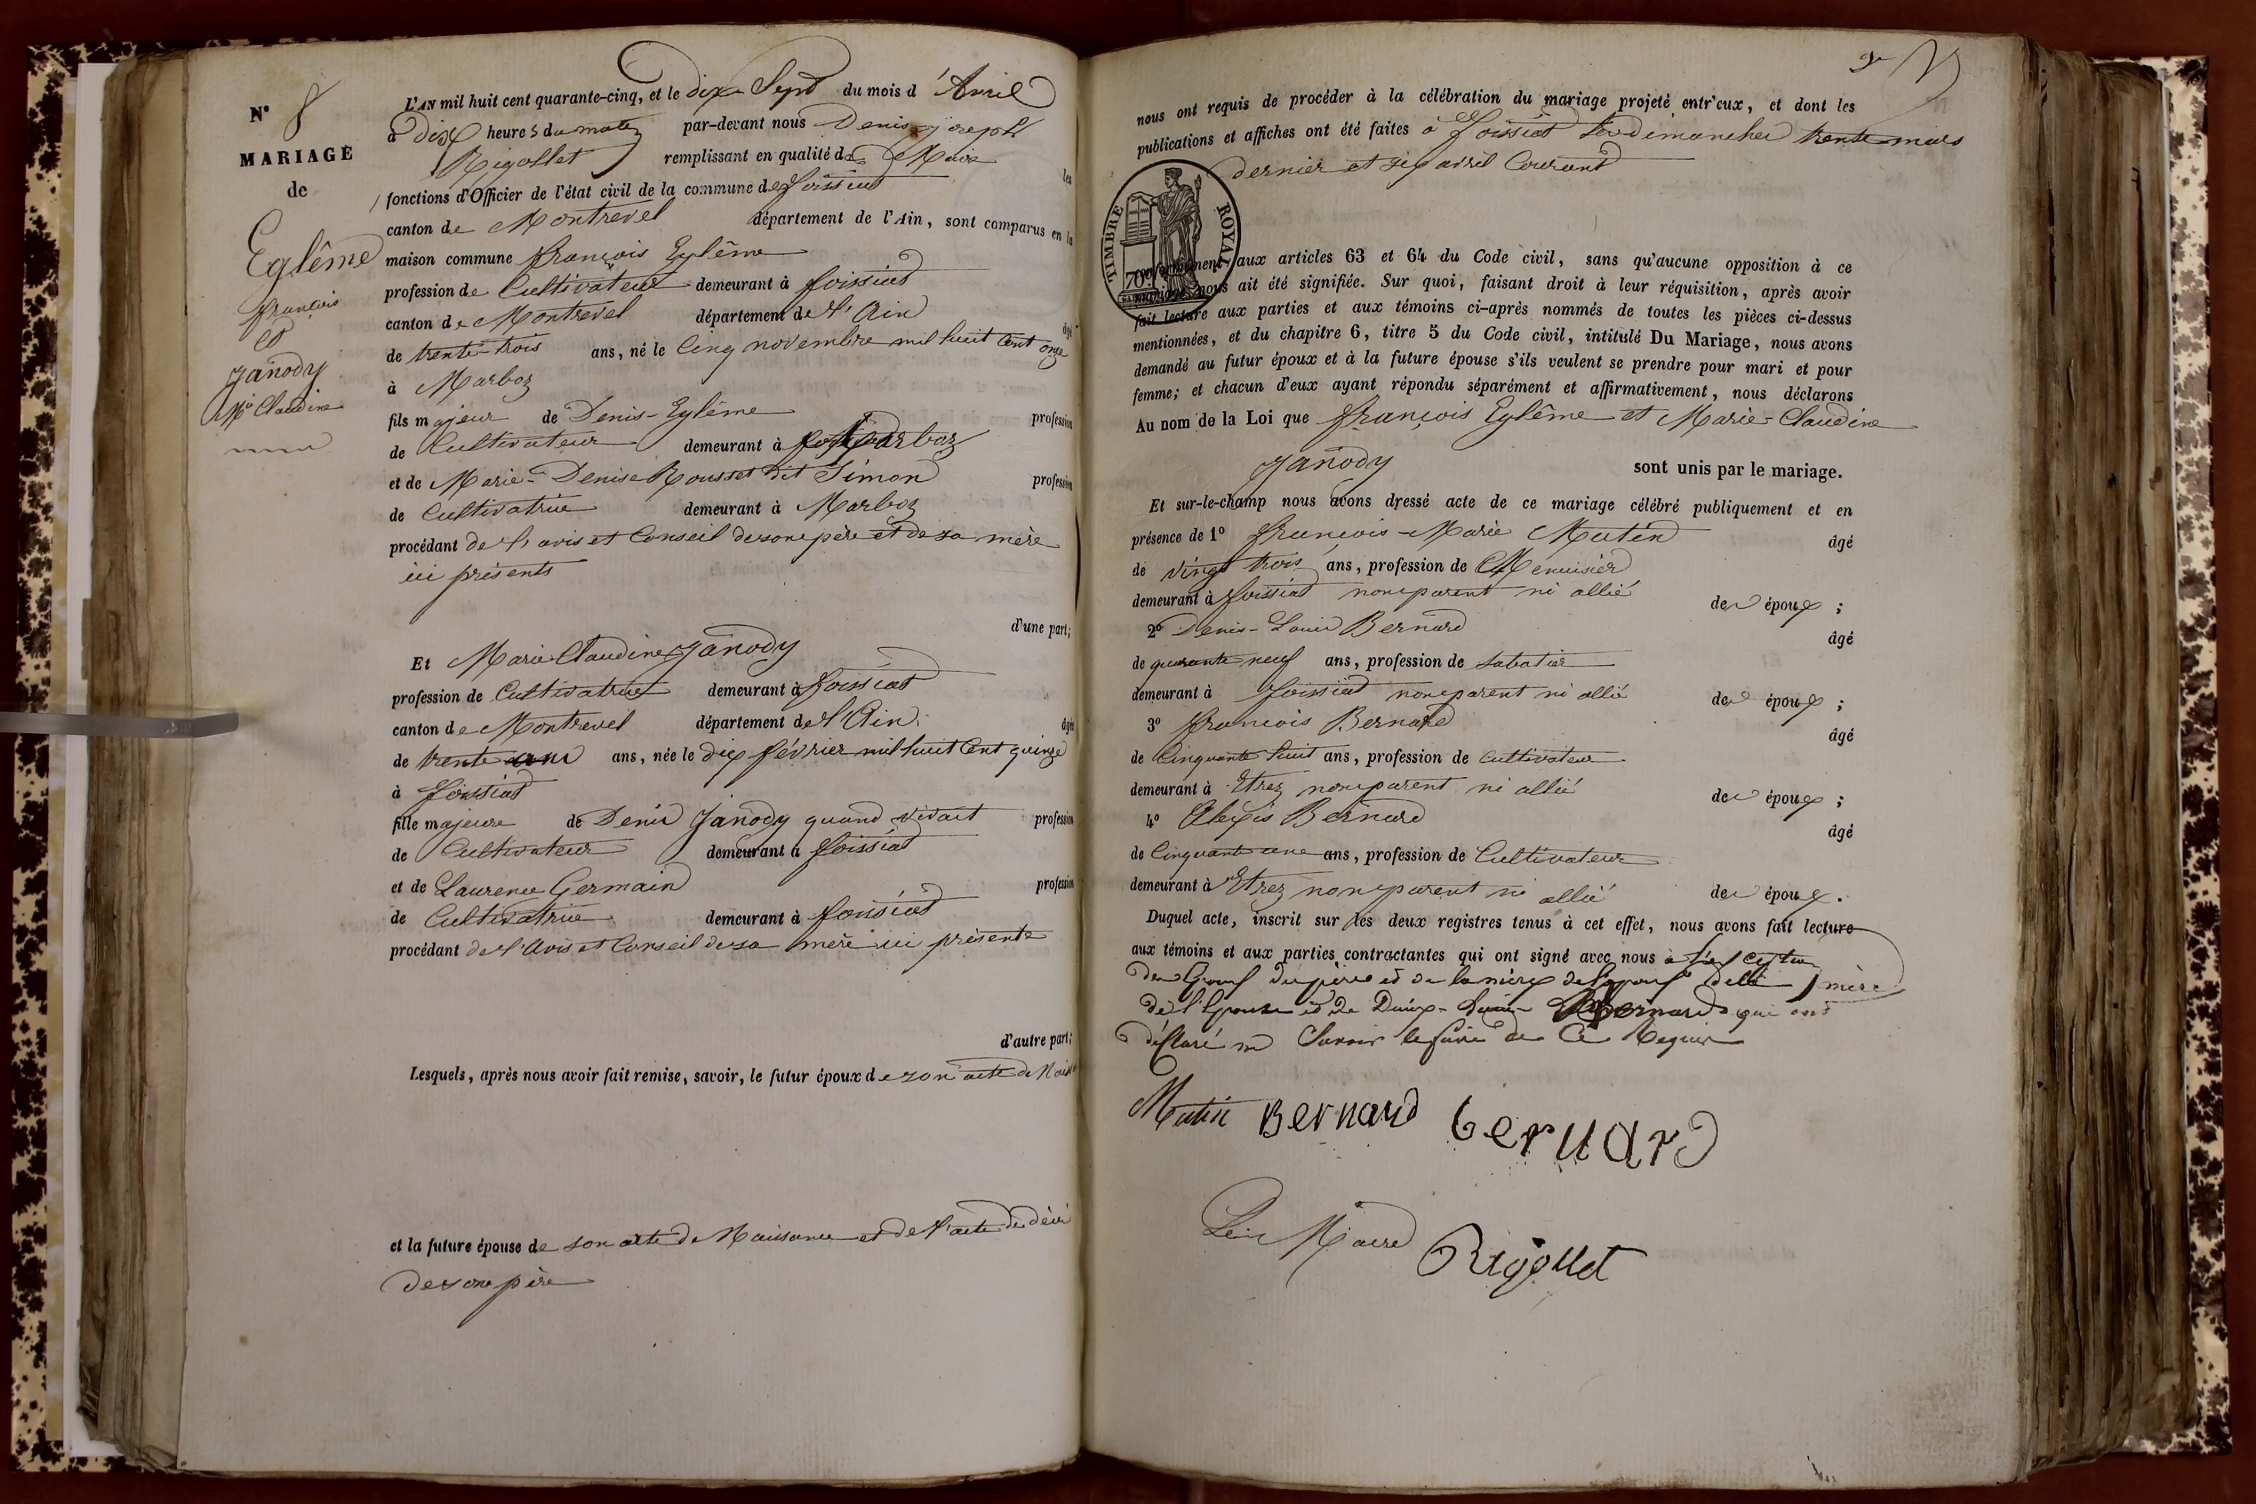 N° 8
MARIAGE
de
Eglême
françois
et
Janody
Mie Claudine
L'AN mil huit cent quarante-cinq, et le dix-Sept du mois d'Avril
à Dix heures du matin par-devant nous Denis-joseph
Rigollet remplissant en qualité de Maire les
fonctions d'Officier de l'état civil de la commune de foissiat
canton de Montrevel département de l'Ain, sont comparus en la
maison commune françois Eglême
profession de Cultivateur demeurant à foissiat
canton de Montrevel département de l'Ain âgé
de trente-trois ans, né le Cinq novembre mil huit Cent onze
à Marboz
fils majeur de Denis-Eglême profession
de Cultivateur demeurant à Marboz
et de Marie-Denise Rousset dit Simon profession
de Cultivatrice demeurant à Marboz
procédant de l'avis et Conseil de son père et de sa mère
ici présents
d'une part;
Et Marie Claudine Janody
profession de Cultivatrice demeurant à foissiat
canton de Montrevel département de l'Ain. âgée
de trente ans, née le dix février mil huit Cent quinze
à foissiat
fille majeure de Denis Janody quand vivait profession
de Cultivateur demeurant à foissiat
et de Laurence Germain profession
de Cultivatrice demeurant à foissiat
procédant de l'Avis et Conseil de sa mère ici présente
d'autre part;
Lesquels, après nous avoir fait remise, savoir, le futur époux de son acte de
et la future épouse de son acte de Naissance et de l'acte de décè
de son père
nous ont requis de procéder à la célébration du mariage projeté entr'eux, et dont les
publications et affiches ont été faites à foissiat les dimanches trente mars
dernier et six avril Courant
TIMBRE ROYAL
70
conformément aux articles 63 et 64 du Code civil, sans qu'aucune opposition à ce
mariage nous ait été signifiée. Sur quoi, faisant droit à leur réquisition, après avoir
fait lecture aux parties et aux témoins ci-après nommés de toutes les pièces ci-dessus
mentionnées, et du chapitre 6, titre 5 du Code civil, intitulé Du Mariage, nous avons
demandé au futur époux et à la future épouse s'ils veulent se prendre pour mari et pour
femme; et chacun d'eux ayant répondu séparément et affirmativement, nous déclarons
Au nom de la Loi que françois Eglême et Marie-Claudine
Janody sont unis par le mariage.
Et sur-le-champ nous avons dressé acte de ce mariage célébré publiquement et en
présence de 1° françois-Marie Mutin âgé
de vingt trois ans, profession de Menuisier
demeurant à foissiat non parent ni allié des époux;
2° Denis-Louis Bernard âgé
de quarante neuf ans, profession de Sabotier
demeurant à foissiat non parent ni allié des époux;
3° françois Bernard âgé
de Cinquante huit ans, profession de Cultivateur
demeurant à Etrez non parent ni allié des époux;
4° Alexis Bernard âgé
de Cinquante une ans, profession de Cultivateur
demeurant à Etrez non parent ni allié des époux.
Duquel acte, inscrit sur les deux registres tenus à cet effet, nous avons fait lecture
aux témoins et aux parties contractantes qui ont signé avec nous à
du père et de la mère de mère
de l'Epouse et de Bernard qui ont
déclaré ne Savoir le faire de Ce requis
Mutin Bernard bernard
Le Maire
Rigollet